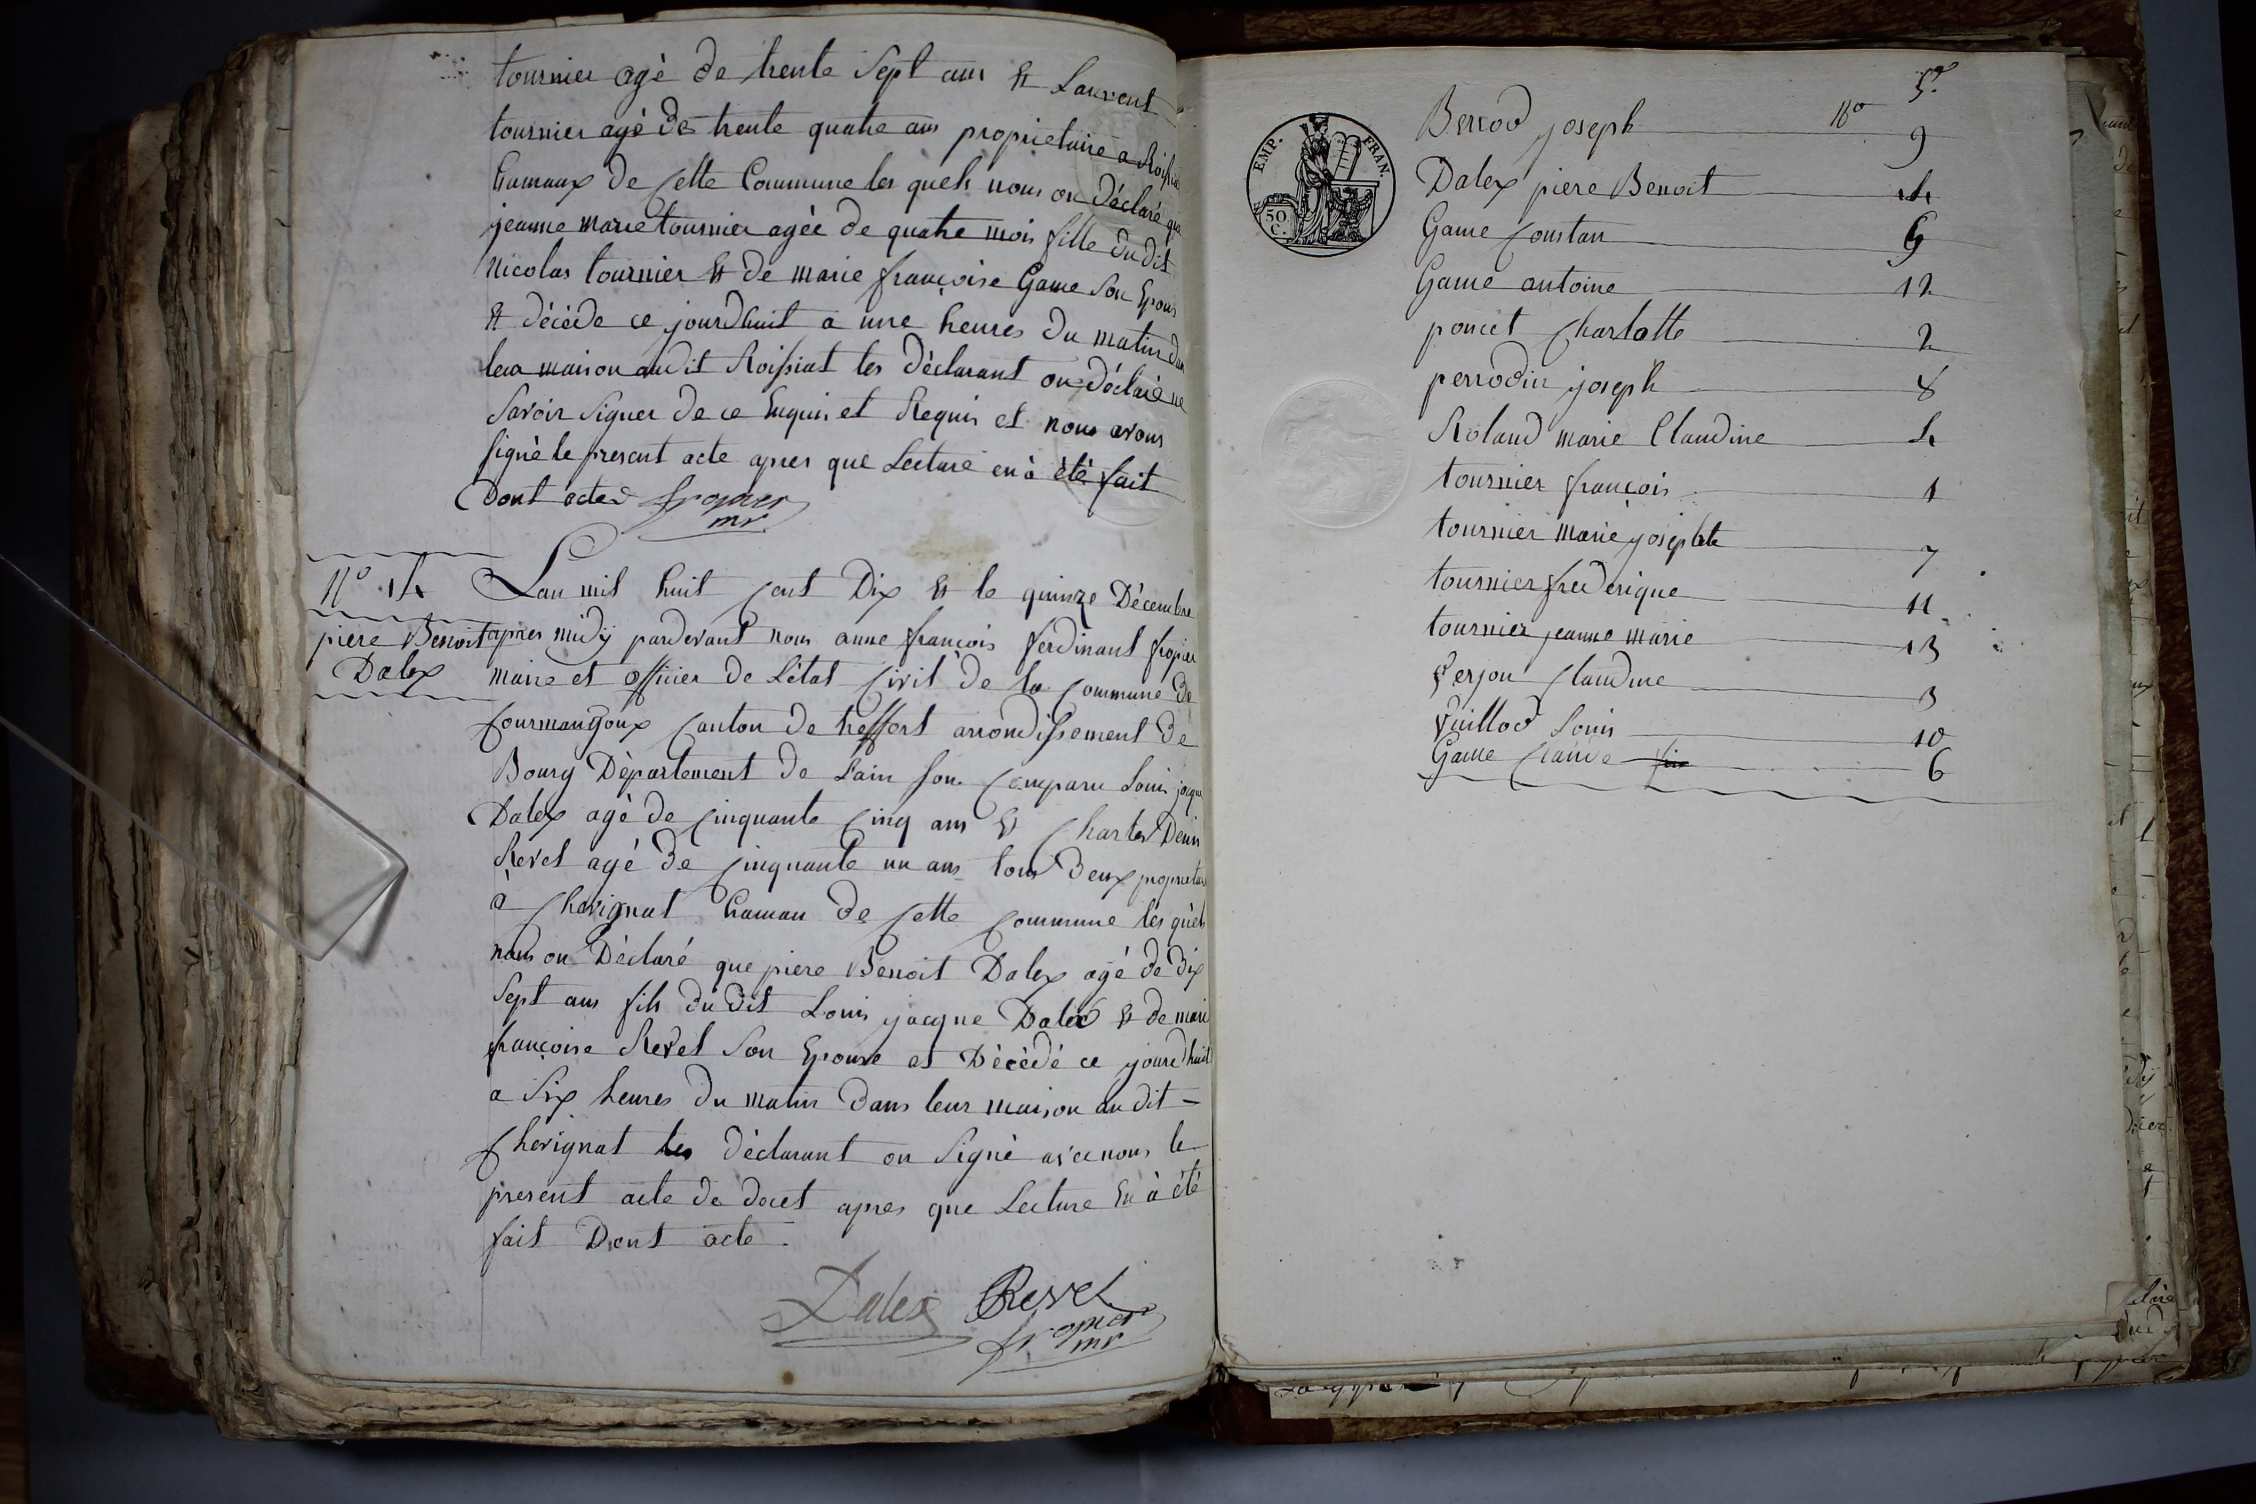 tournier agè de trente Sept ans et Laurent
tournier agè de trente quatre ans proprietaire a Roissia
hamaux de Cette Commune les quels nous on Déclaré que
jeanne marie tournier agèe de quatre mois fille du dit
Nicolas tournier et de marie françoise Game Son Epous
et décède ce jourdhuit a une heures du matin dan
leur maison audit Roissiat les Déclarant on Déclaré ne
Savoir Signer de ce Enquis et Requis et nous avons
Signè le present acte apres que Lecture en à été fait
Dont acte
fropier
mr
N° 14
piere Benoit
Dalex
Lan mil huit Cent Dix et le quinze Décembre
apres midÿ pardevant nous anne françois ferdinant fropier
maire et officier de Létat Civil de la Commune de
Courmangoux Canton de treffort arrondissement de
Bourg Département de Lain Son Comparu Louis jacque
Dalex agè de Cinquante Cinq ans et Charles Denis
Revel agé de Cinquante un ans tous deux proprietair
a Chevignat hamau de Cette Commune lés quels
nous on Déclaré que piere Benoit Dalex agé de Dix
Sept ans fils du dit Louis jacque Dalex et de mari
françoise Revel Son Epouse et Décédé ce jourdhuit
a Six heures du matin Dans leur maison au dit -
Chevignat les déclarant on Signè avec nous le
present acte de decet apres que Lecture En à été
fait Dont acte .
Dalex Revel
fropier
mr
EMP. FRAN.
50 C.
Bercod joseph N° 9
Dalex piere Benoit 14
Game Constan 5
Game antoine 12
poncet Charlotte 2
perrodin joseph 8
Roland marie Claudine 4
tournier françois 1
tournier marie josephte 7
tournier frederique 11
tournier jeanne marie 13
Verjon Claudine 3
Vuillod Louis 10
Game Claude 6